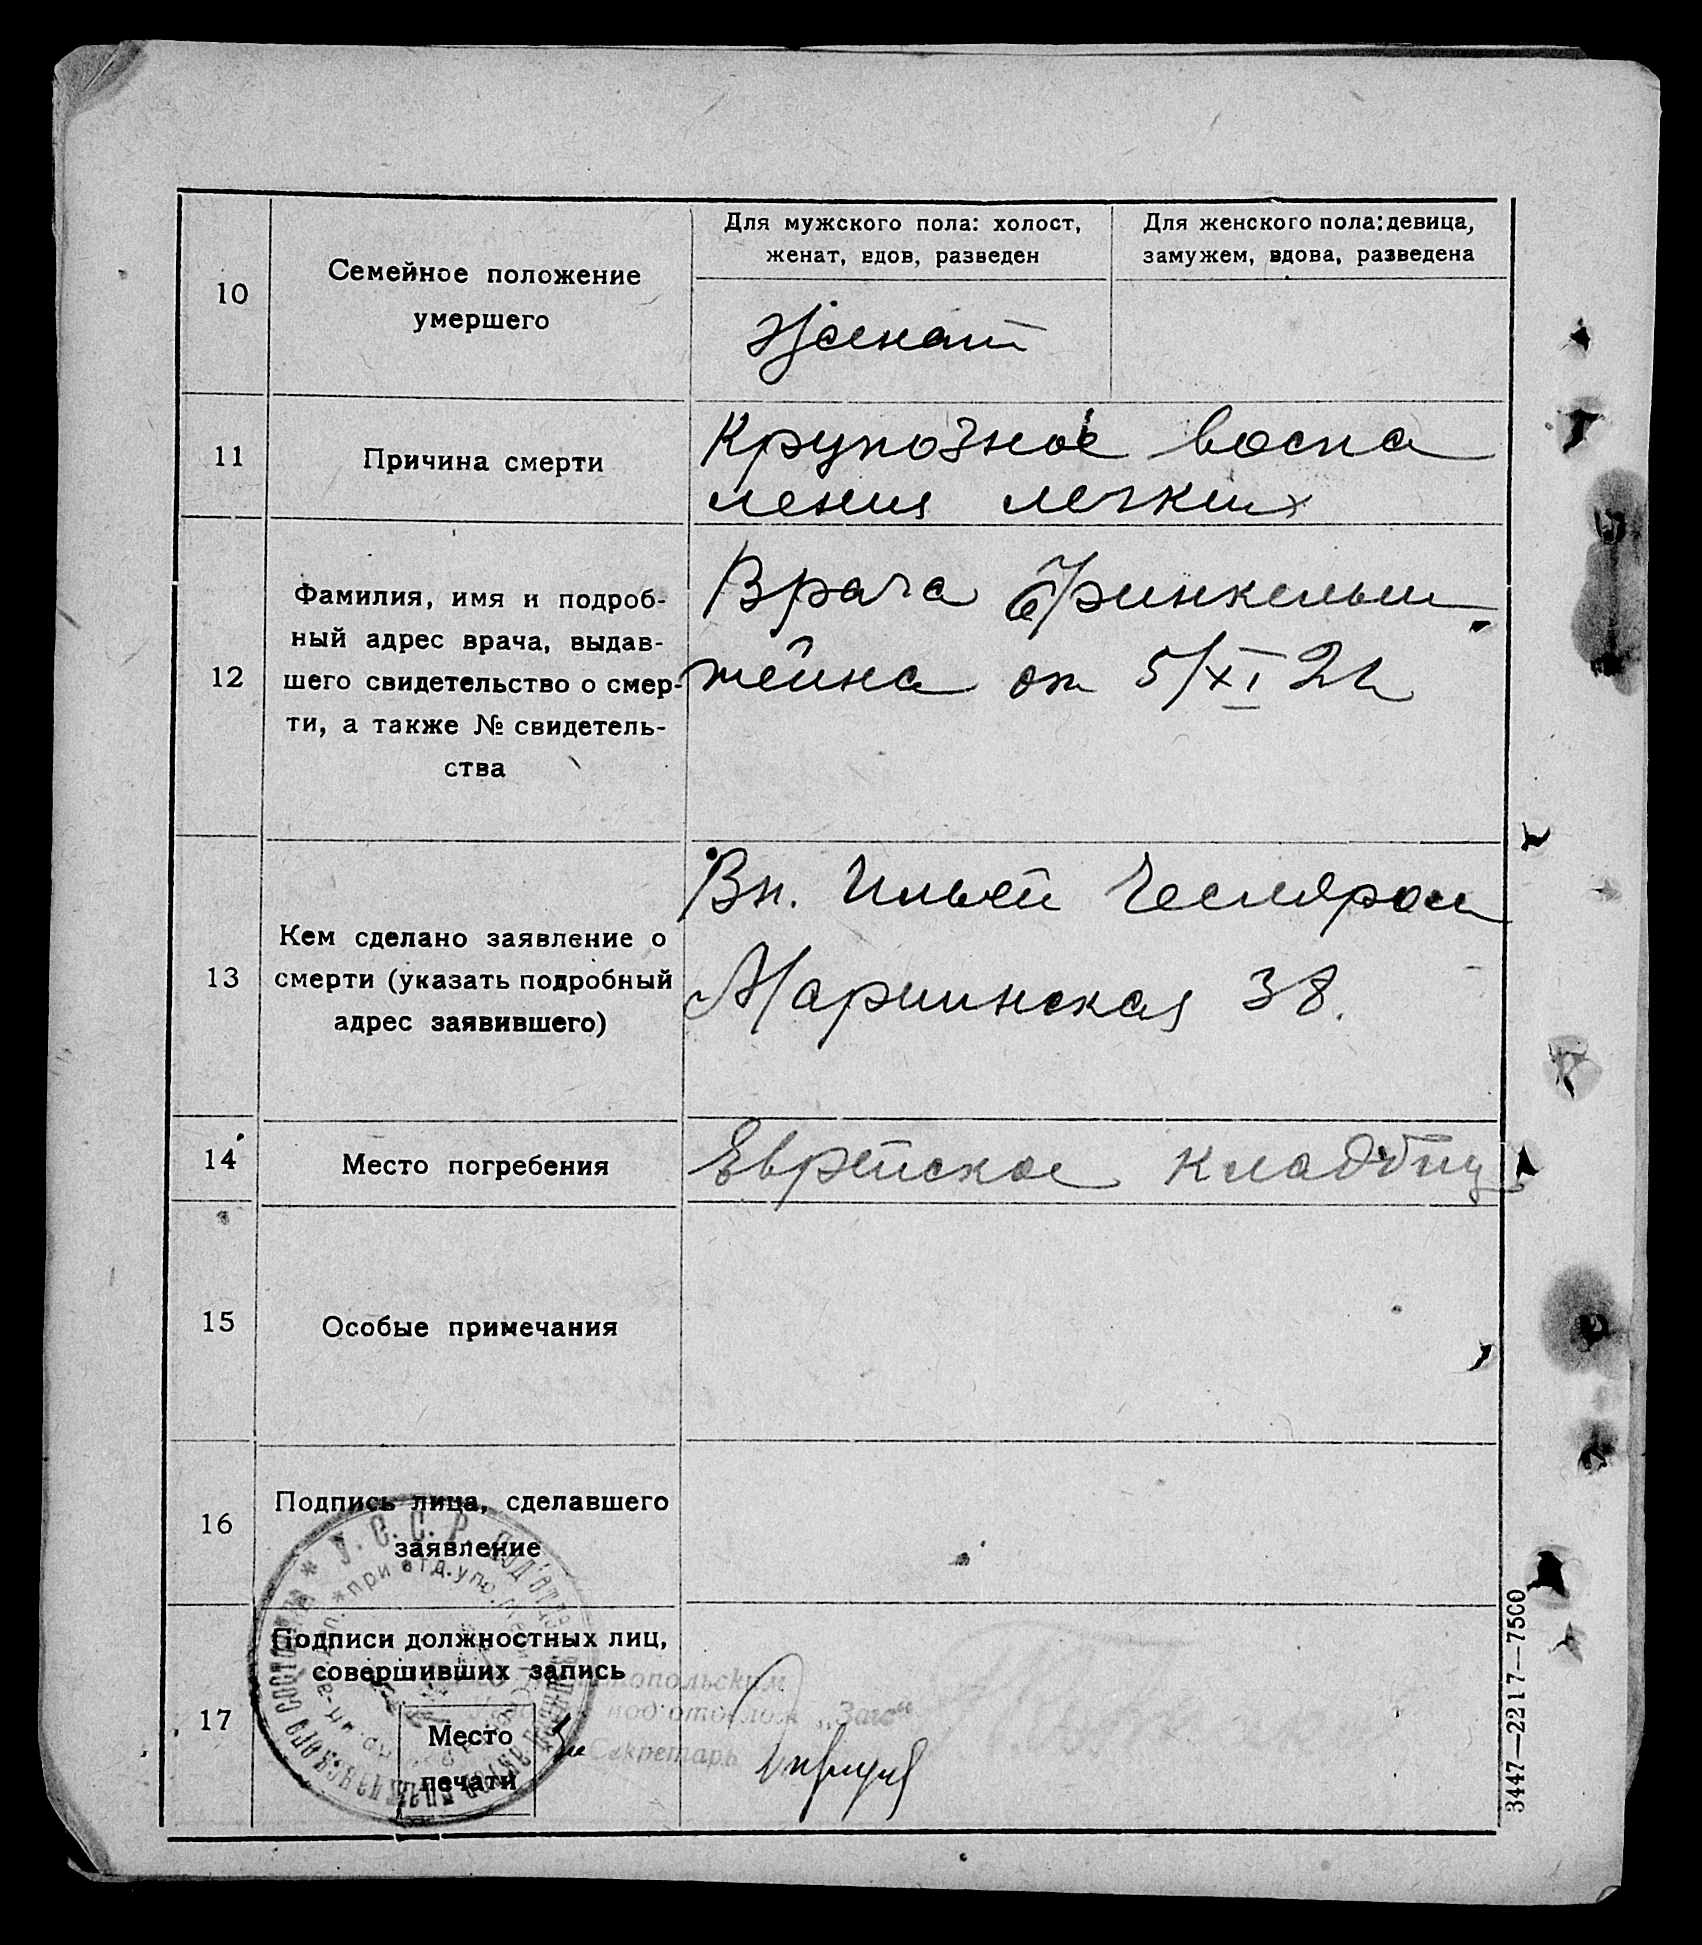 10
Семейное положение
умершего
Для мужского пола: холост,
женат, вдов, разведен
Для женского пола: девица,
замужем, вдова, разведена
Женат
11
Причина смерти
Крупозное воспа
ления легких
12
Фамилия, имя и подроб-
ный адрес врача, выдав-
шего свидетельство о смер-
ти, а также № свидетель-
ства
Врача Финкельш
тейна от 5/XI 22
13
Кем сделано заявление о
смерти (указать подробный
адрес заявившего)
Вп. Ильей Чесляром
Мариинская 38.
14
Место погребения
Еврейское кладбищ
15
Особые примечания
16
Подпись лица, сделавшего
заявление
17
Подписи должностных лиц,
совершивших запись
Место
печати
У. С. С. Р.
при отд. упр.
под'отдел „Загс“
Секретарь
3447—2217—7500